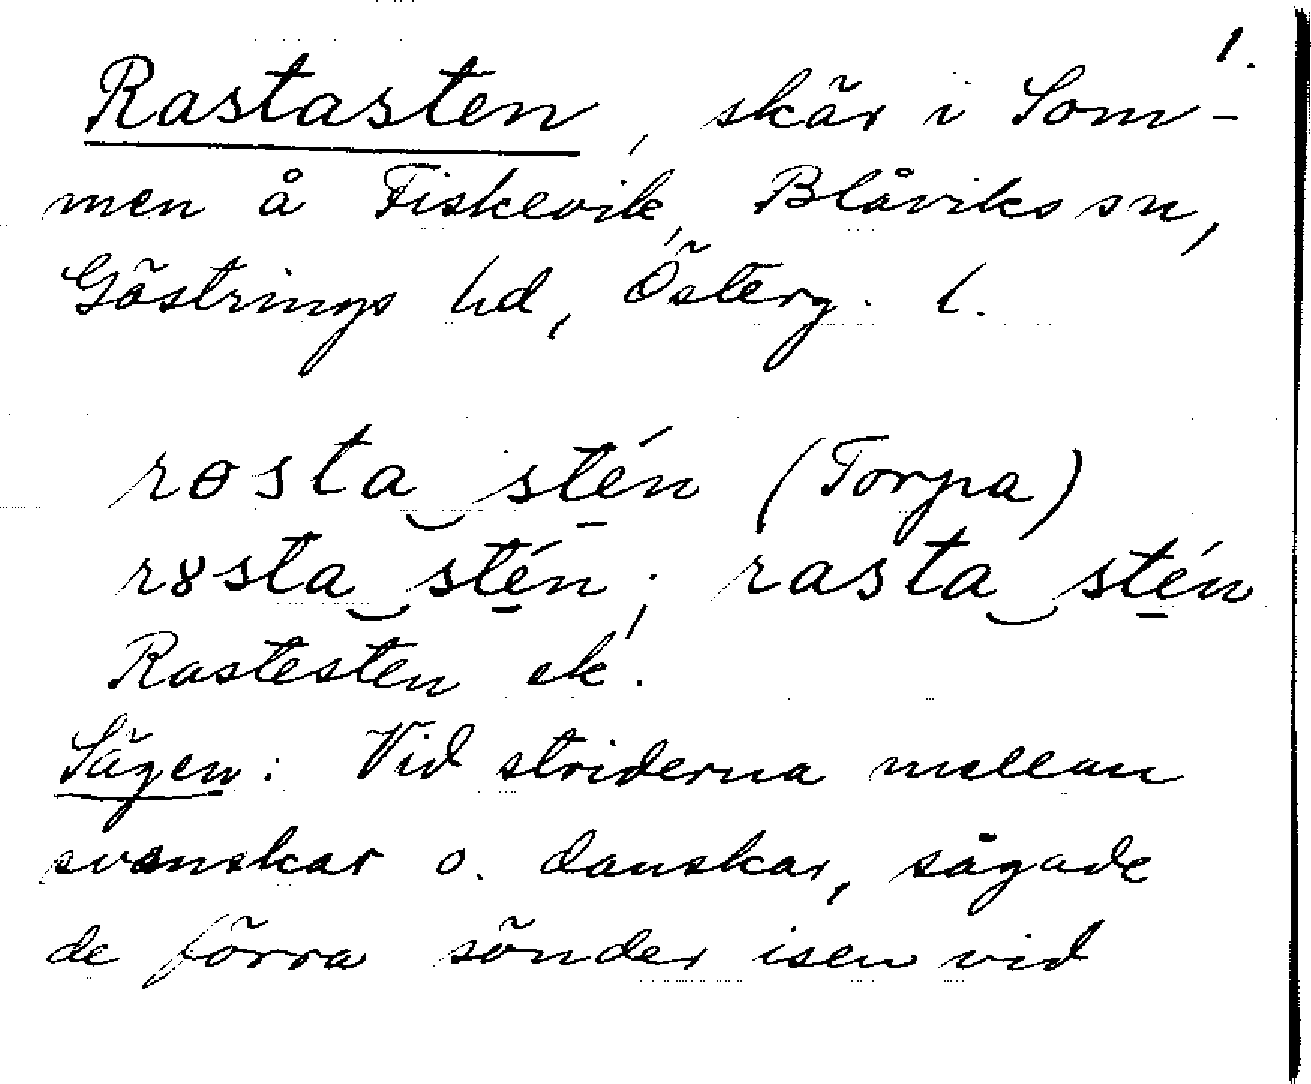 1.
Rastasten, skär i Som-
men å Fiskevik, Blåviks sn,
Göstrings hd, Österg. l.
rɵsta‿stén (Torpa)
r8sta‿stén; rasta‿stén
Rastesten ek.
Sägen: Vid striderna mellan
svenskar o. danskar, sågade
de förra sönder isen vid